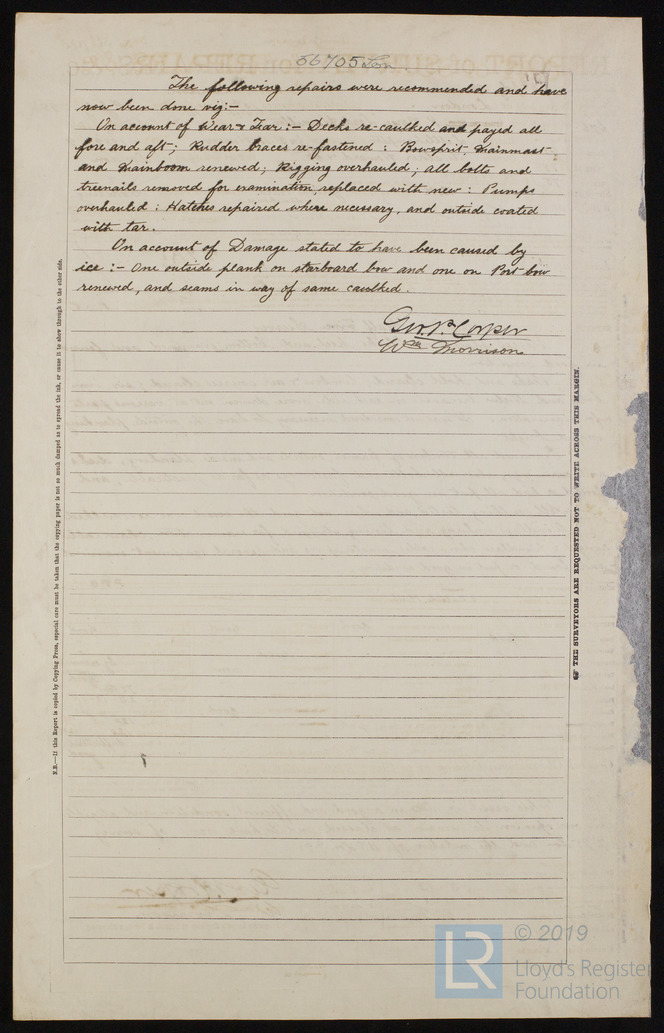 56705 Lon
The following repairs were recommended and have
now been done viz:-
On account of Wear & Tear :- Decks re-caulked and payed all
fore and aft; Rudder braces re-fastened : Bowsprit, Mainmast
and Mainboom renewed; Rigging overhauled; all bolts and
treenails removed for examination, replaced with new : Pumps
overhauled : Hatches repaired where necessary, and outside coated
with tar.
On account of Damage stated to have been caused by
ice :- One outside plank on starboard bow and one on Port-bow
renewed, and seams in way of same caulked.
Corper
Wm Morrison
N.B.—If this Report is copied by Copying Press, especial care must be taken that the copying paper is not so much damped as to spread the ink, or cause it to show through to the other side.
THE SURVEYORS ARE REQUESTED NOT TO WRITE ACROSS THIS MARGIN.
LR
© 2019
Lloyd's Register
Foundation